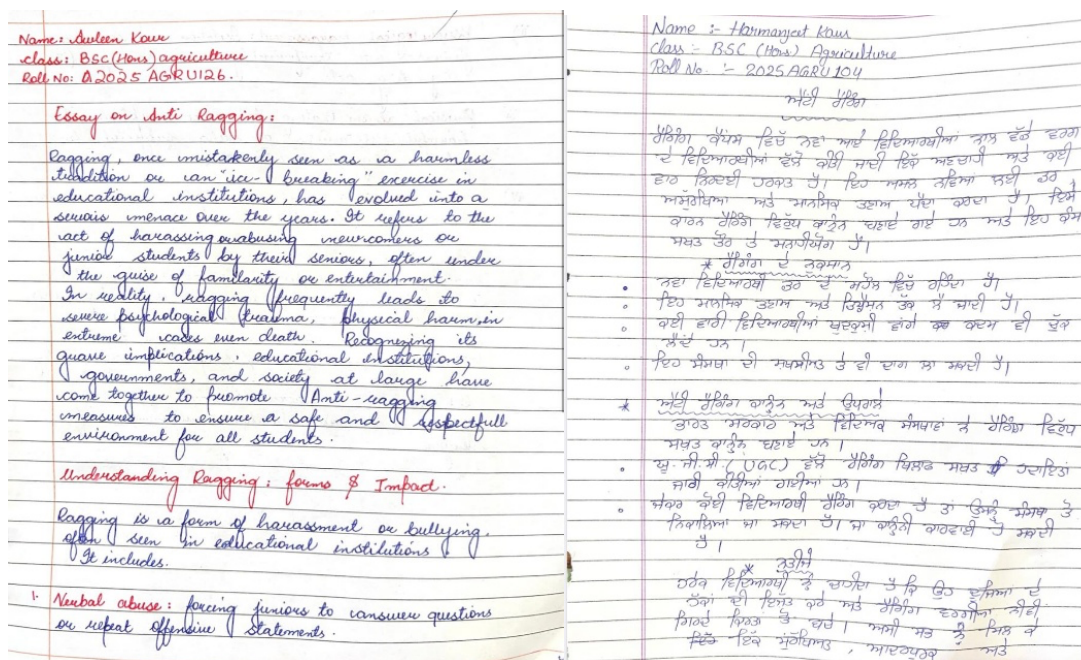 Name: Avleen Kaur
class: BSC(Hons) agriculture
Roll No: A2025 AGRU126.
Essay on Anti Ragging:
Ragging, once mistakenly seen as a harmless
tradition or an "ice-breaking" exercise in
educational institutions, has evolved into a
serious menace over the years. It refers to the
act of harassing or abusing newcomers or
junior students by their seniors, often under
the guise of familarity or entertainment.
In reality, ragging frequently leads to
severe psychological trauma, physical harm, in
extreme cases even death. Recognizing its
grave implications, educational institutions,
governments, and society at large have
come together to promote Anti-ragging
measures to ensure a safe and respectfull
environment for all students.
Understanding Ragging: forms & Impact.
Ragging is a form of harassment or bullying,
often seen in educational institutions
It includes.
1. Verbal abuse: forcing juniors to answer questions
or repeat offensive statements.
Name :- Harmanjeet Kaur
class :- BSC (Hons) Agriculture
Roll No. :- 2025AGRU104
ਐਂਟੀ ਰੈਗਿੰਗ
ਰੈਗਿੰਗ ਕੈਂਪਸ ਵਿੱਚ ਨਵਾਂ ਆਏ ਵਿਦਿਆਰਥੀਆਂ ਨਾਲ ਵੱਡੇ ਵਰਗ
ਦੇ ਵਿਦਿਆਰਥੀਆਂ ਵੱਲੋਂ ਕੀਤੀ ਜਾਂਦੀ ਇੱਕ ਅਣਚਾਹੀ ਅਤੇ ਕਈ
ਵਾਰ ਨਿਰਦਈ ਹਰਕਤ ਹੈ। ਇਹ ਅਮਲ ਨਵਿਆਂ ਲਈ ਡਰ,
ਅਸੁਰੱਖਿਆ ਅਤੇ ਮਾਨਸਿਕ ਤਣਾਅ ਪੈਦਾ ਕਰਦਾ ਹੈ। ਇਸੇ
ਕਾਰਨ ਰੈਗਿੰਗ ਵਿਰੁੱਧ ਕਾਨੂੰਨ ਬਣਾਏ ਗਏ ਹਨ ਅਤੇ ਇਹ ਕੰਮ
ਸਖਤ ਤੌਰ ਤੇ ਮਨਾਹੀਯੋਗ ਹੈ।
* ਰੈਗਿੰਗ ਦੇ ਨੁਕਸਾਨ
• ਨਵਾਂ ਵਿਦਿਆਰਥੀ ਡਰ ਦੇ ਮਹੌਲ ਵਿੱਚ ਰਹਿੰਦਾ ਹੈ।
• ਇਹ ਮਾਨਸਿਕ ਤਣਾਅ ਅਤੇ ਡਿਪ੍ਰੈਸ਼ਨ ਤੱਕ ਲੈ ਜਾਂਦੀ ਹੈ।
• ਕਈ ਵਾਰੀ ਵਿਦਿਆਰਥੀਆਂ ਖੁਦਕੁਸ਼ੀ ਵਾਂਗੇ ਕਦਮ ਵੀ ਚੁੱਕ
ਲੈਂਦੇ ਹਨ।
• ਇਹ ਸੰਸਥਾ ਦੀ ਸਾਖ ਤੇ ਵੀ ਦਾਗ ਲਾ ਸਕਦੀ ਹੈ।
* ਐਂਟੀ ਰੈਗਿੰਗ ਕਾਨੂੰਨ ਅਤੇ ਉਪਰਾਲੇ
ਭਾਰਤ ਸਰਕਾਰ ਅਤੇ ਵਿਦਿਅਕ ਸੰਸਥਾਵਾਂ ਨੇ ਰੈਗਿੰਗ ਵਿਰੁੱਧ
ਸਖ਼ਤ ਕਾਨੂੰਨ ਬਣਾਏ ਹਨ।
• ਯੂ.ਜੀ.ਸੀ. (UGC) ਵੱਲੋਂ ਰੈਗਿੰਗ ਖਿਲਾਫ ਸਖਤ ਹਦਾਇਤਾਂ
ਜਾਰੀ ਕੀਤੀਆਂ ਗਈਆਂ ਹਨ।
• ਜੇਕਰ ਕੋਈ ਵਿਦਿਆਰਥੀ ਰੈਗਿੰਗ ਕਰਦਾ ਹੈ ਤਾਂ ਉਸਨੂੰ ਸੰਸਥਾ ਤੋਂ
ਨਿਕਾਲਿਆ ਜਾ ਸਕਦਾ ਹੈ। ਜਾਂ ਕਾਨੂੰਨੀ ਕਾਰਵਾਈ ਹੋ ਸਕਦੀ
ਹੈ।
* ਨਤੀਜੇ
ਹਰੇਕ ਵਿਦਿਆਰਥੀ ਨੂੰ ਚਾਹੀਦਾ ਹੈ ਕਿ ਉਹ ਦੂਜਿਆਂ ਦੇ
ਹੱਕਾਂ ਦੀ ਇੱਜ਼ਤ ਕਰੇ ਅਤੇ ਰੈਗਿੰਗ ਵਰਗੀਆਂ ਨੀਵੀਂ
ਤੋਂ ਬਚੇ। ਅਸੀਂ ਸਭ ਨੂੰ ਮਿਲ ਕੇ
ਇੱਕ ਸੁਰੱਖਿਅਤ, ਆਦਰਪੂਰਕ ਅਤੇ